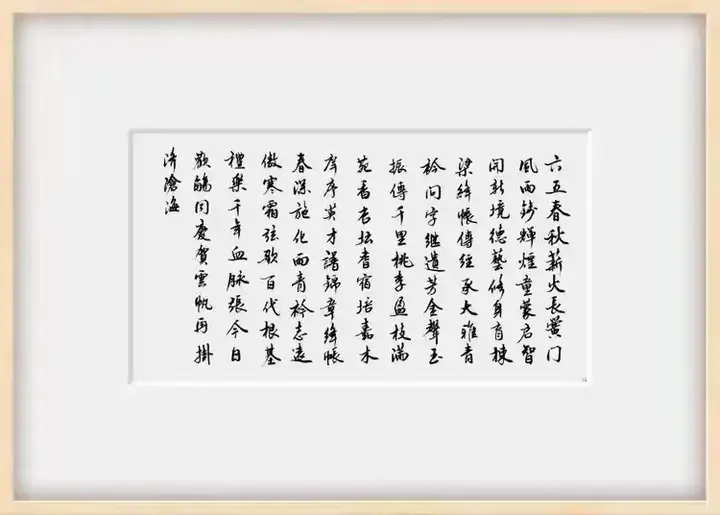 六五春秋薪火長黌门
風雨鑄輝煌童蒙启智
開新境德藝修身育棟
梁絳帳傳經承大雅青
衿问字继遺芳金聲玉
振傳千里桃李盈枝滿
苑香杏坛耆宿培嘉木
庠序英才譜錦章絳帳
春深施化雨青衿志遠
傲寒霜弦歌百代根基
禮樂千年血脉張今日
歡觴同慶賀雲帆再掛
济滄海